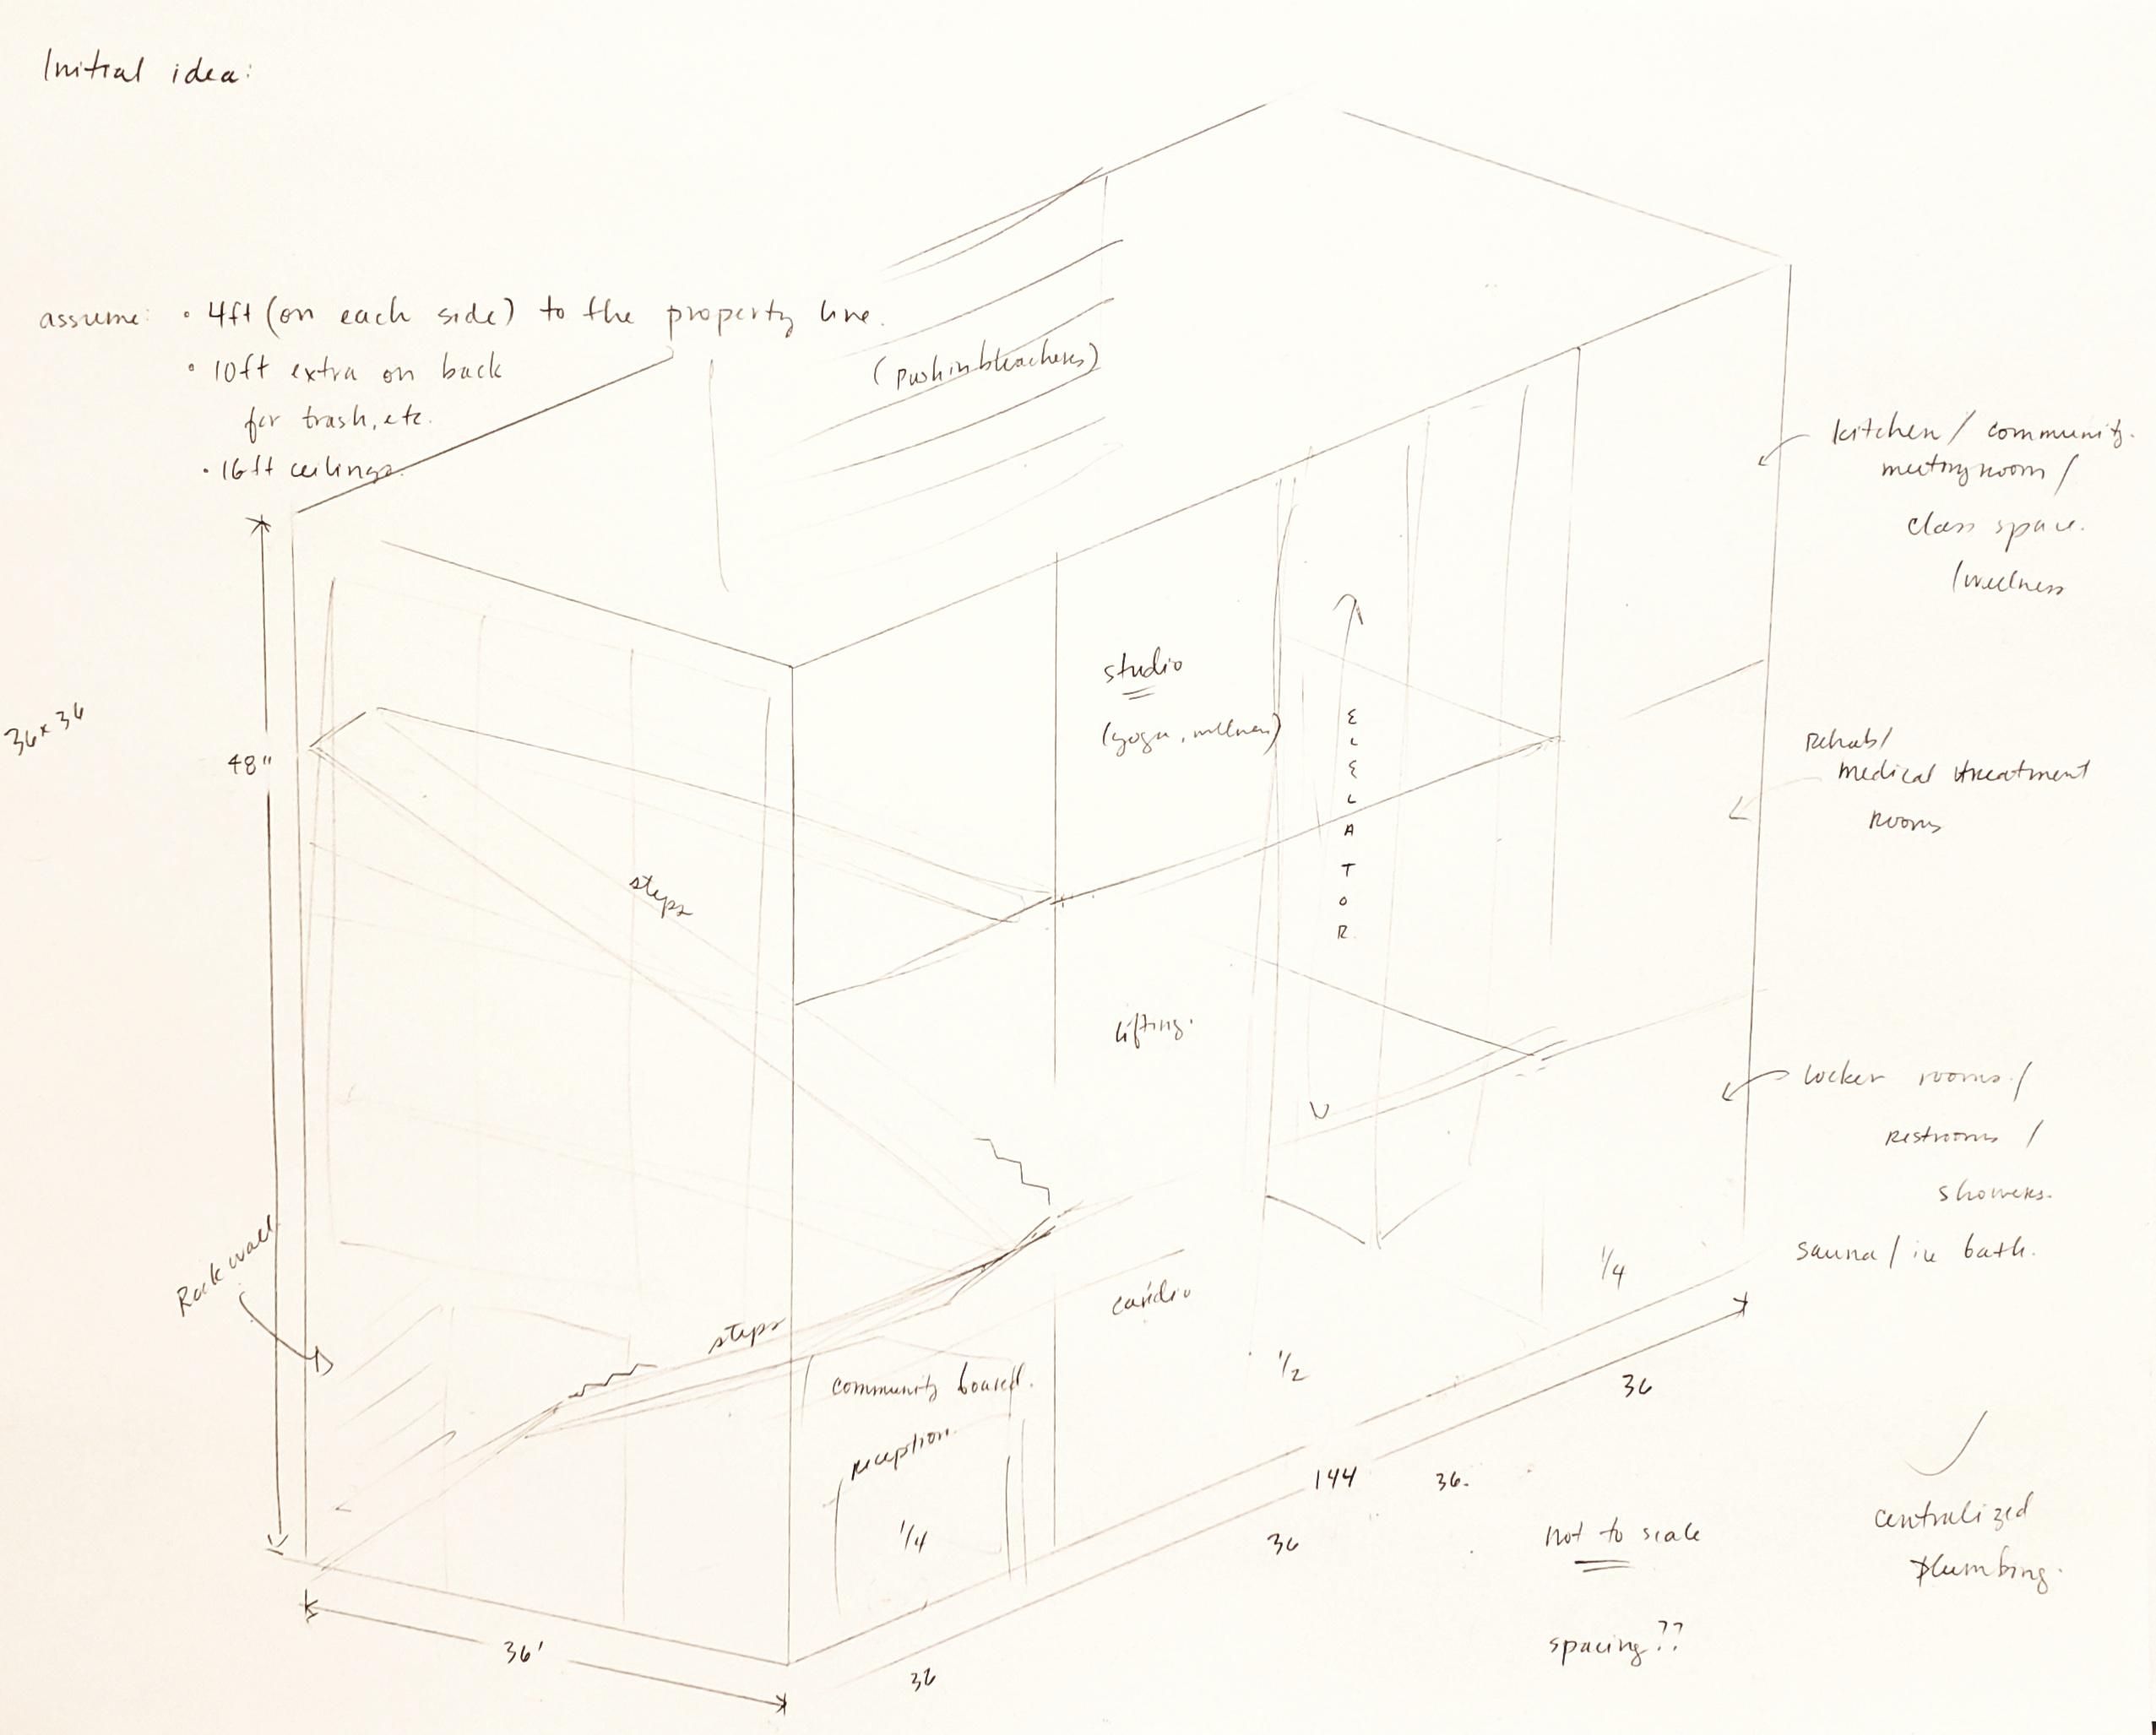 Initial idea:
assume: • 4ft (on each side) to the property line.
• 10ft extra on back
for trash, etc.
• 16ft ceilings.
(push in bleachers)
kitchen / community
meeting room /
class space.
/wellness
studio
(yoga, wellness)
ELEVATOR
36x36
48"
Rehab/
medical treatment
rooms
steps
lifting.
locker rooms /
restrooms /
showers.
sauna / ice bath.
Rock wall
steps
cardio
community board.
reception.
1/4
1/2
1/4
36'
36
36
144
36.
36
not to scale
spacing??
centralized
plumbing.